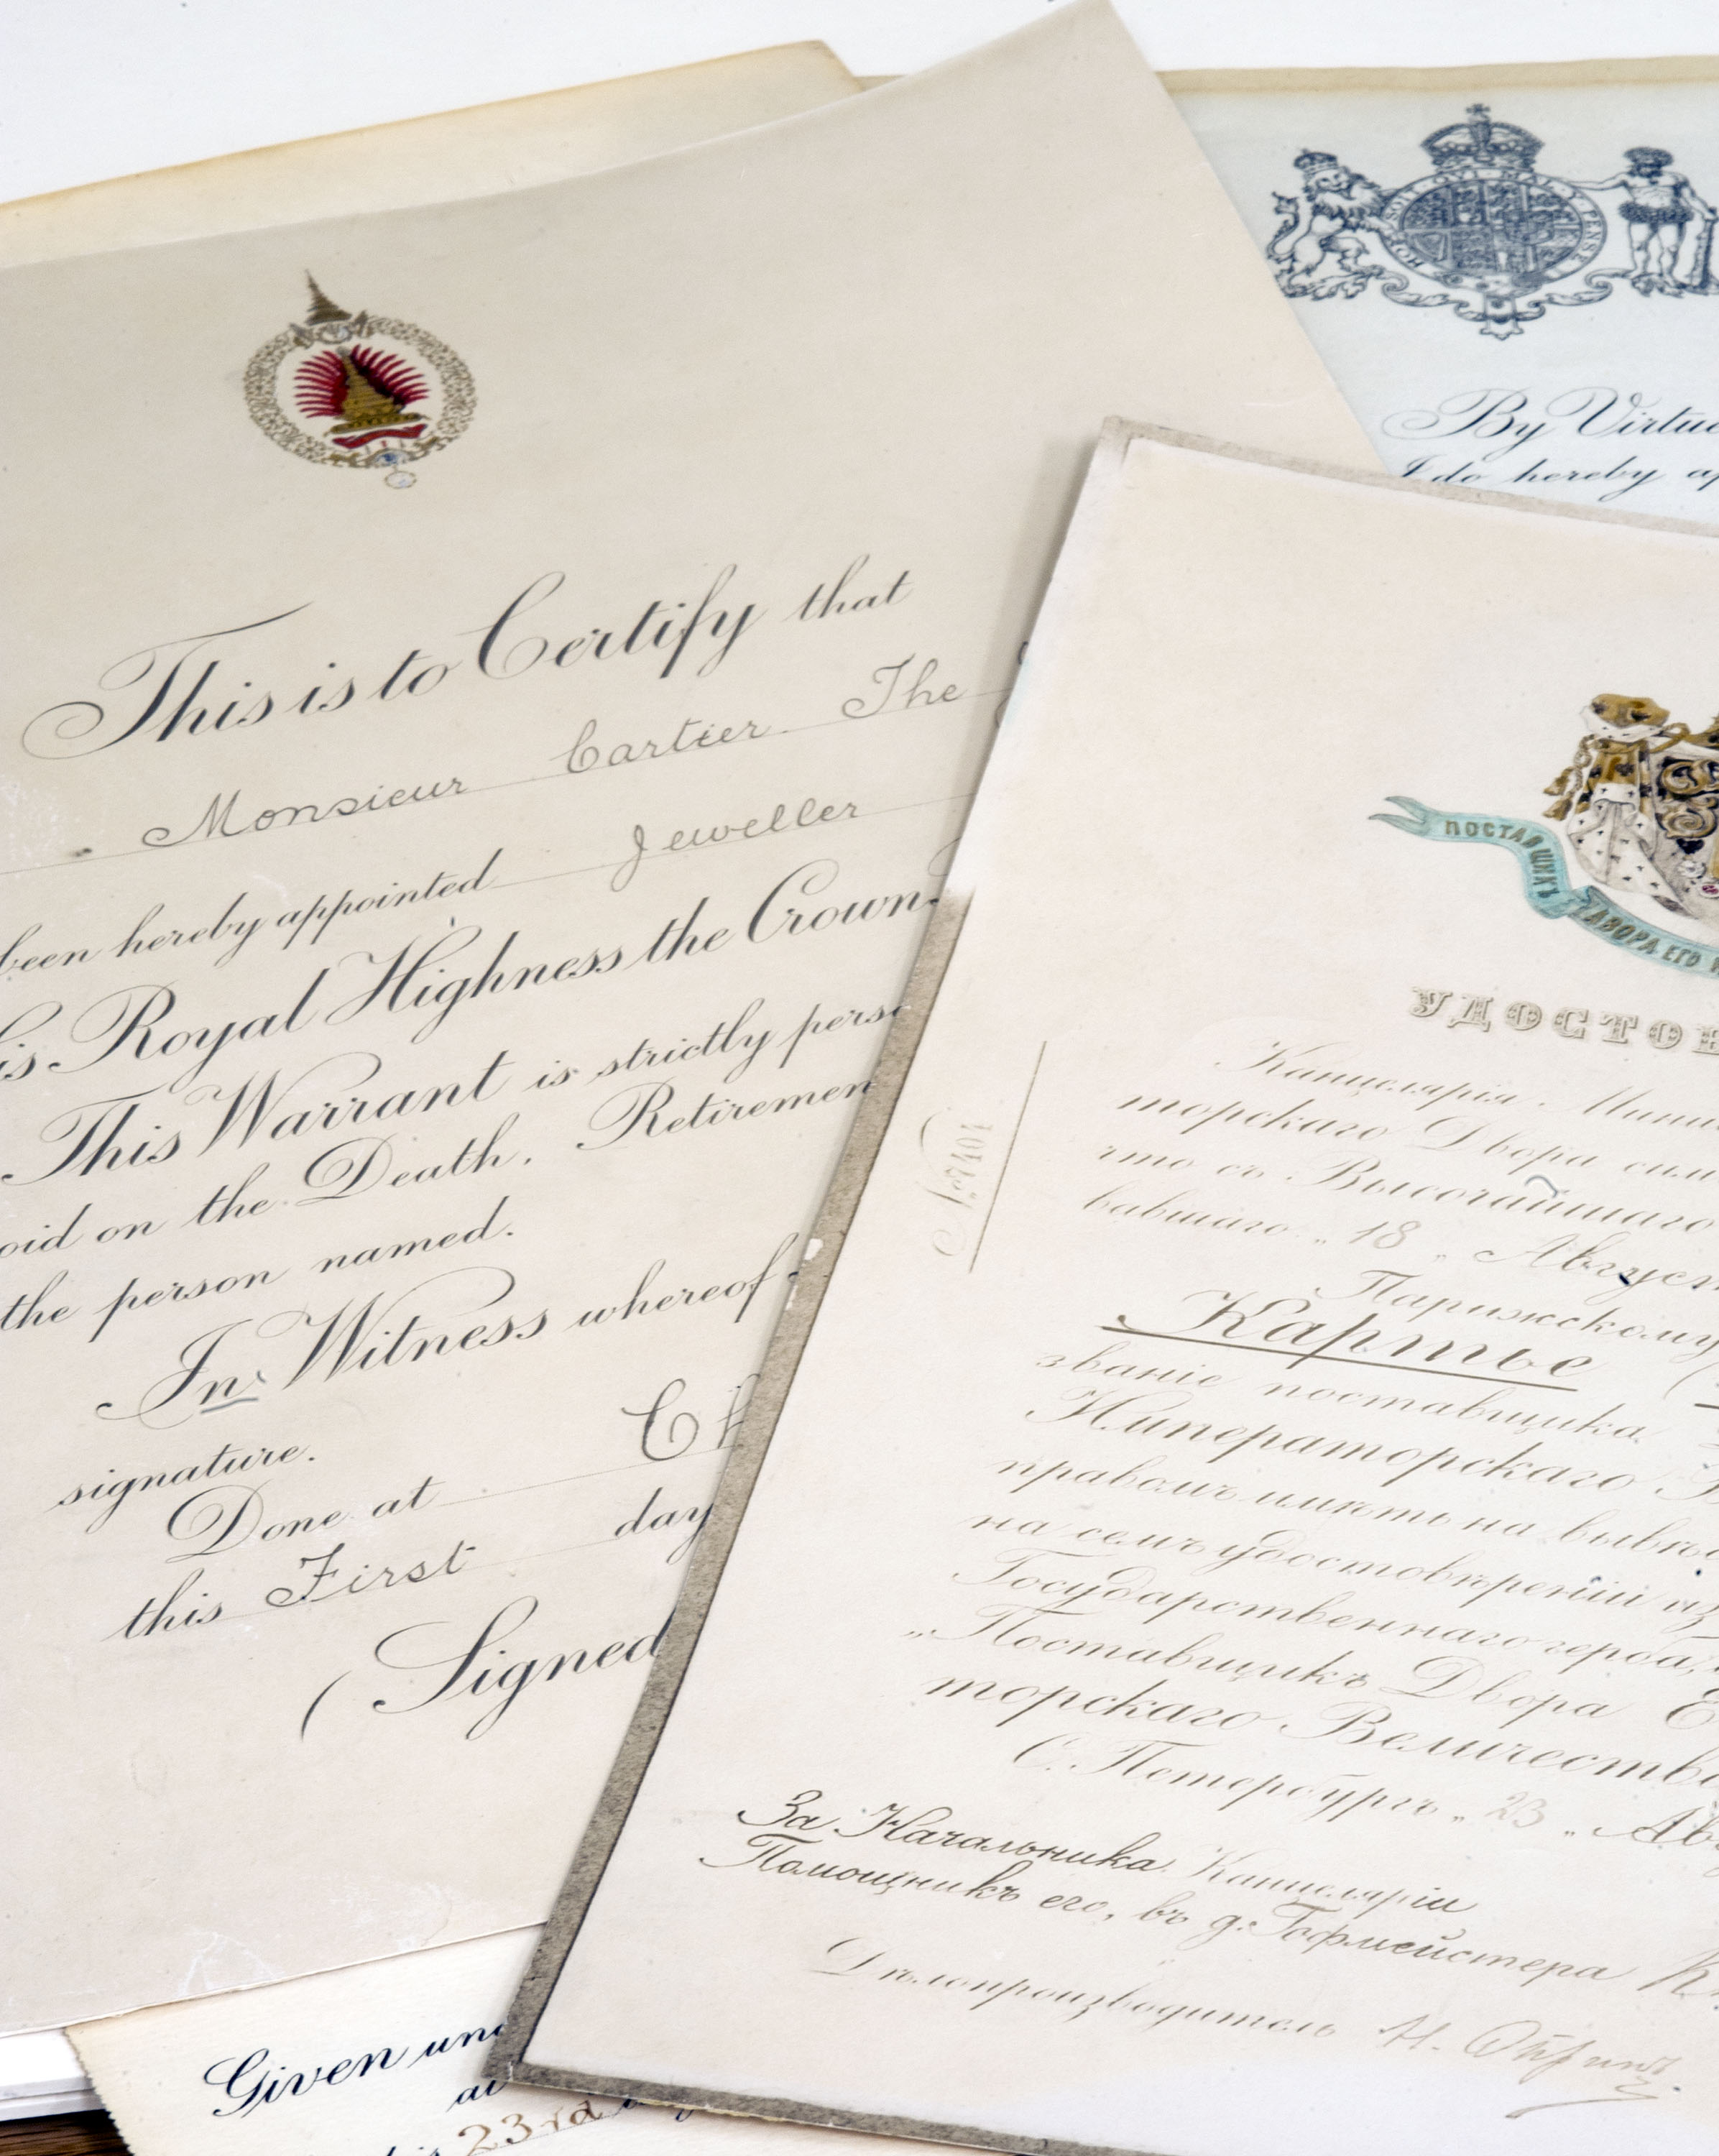 This is to Certify that
Monsieur Cartier The
been hereby appointed Jeweller
is Royal Highness the Crown
This Warrant is strictly perso
oid on the Death, Retiremen
the person named.
In Witness whereof
signature.
Done at Ch
this First day
(Signed
HONI SOIT QUI MAL Y PENSE
By Virtue
I do hereby ap
ПОСТАВЩИКЪ ДВОРА ЕГО И
УДОСТОВ
№ 7401
Канцелярія Мини
торскаго Двора сим
что съ Высочайшаго
вавшаго „18„ Август
Парижскому
Картье
званіе поставщика
Императорскаго
правомъ имѣть на вывѣс
на семъ удостовѣреніи из
Государственнаго герба,
„Поставщикъ Двора Е
торскаго Величества
С. Петербургъ „23„ Ав
За Начальника Канцеляріи
Помощникъ его, въ д. Гофмейстера К
Дѣлопроизводитель Н.
Given und
at
23rd